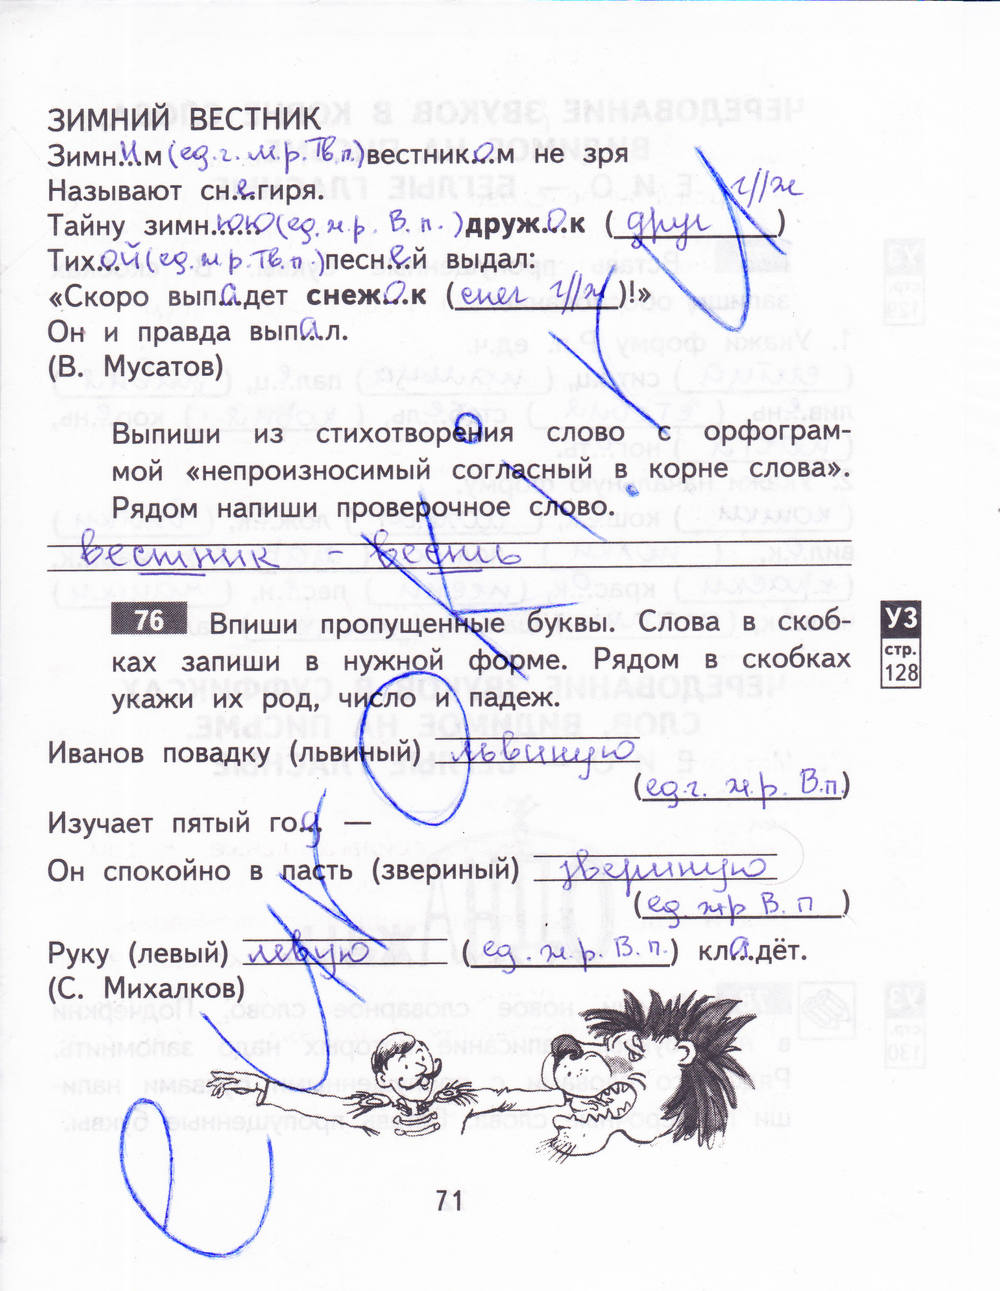 ЗИМНИЙ ВЕСТНИК
Зимн.И.м (ед.г. м.р. Тв.п.) вестник.о.м не зря
Называют сн.е.гиря.
г//ж
Тайну зимн.юю (ед. ж.р. В. п.) друж.о.к (друг)
Тих.ой (ед. ж р. Тв. п.) песн.е.й выдал:
«Скоро вып.а.дет снеж.о.к (снег г//ж)!»
Он и правда вып.а.л.
(В. Мусатов)
Выпиши из стихотворения слово с орфограм-
мой «непроизносимый согласный в корне слова».
Рядом напиши проверочное слово.
вестник – весть
76 Впиши пропущенные буквы. Слова в скоб-
ках запиши в нужной форме. Рядом в скобках
укажи их род, число и падеж.
УЗ
стр.
128
Иванов повадку (львиный) львиную
(ед.г. ж.р. В.п.)
Изучает пятый год —
Он спокойно в пасть (звериный) звериную
(ед жр В. п)
Руку (левый) левую (ед. ж.р. В. п.) кл.а.дёт.
(С. Михалков)
71